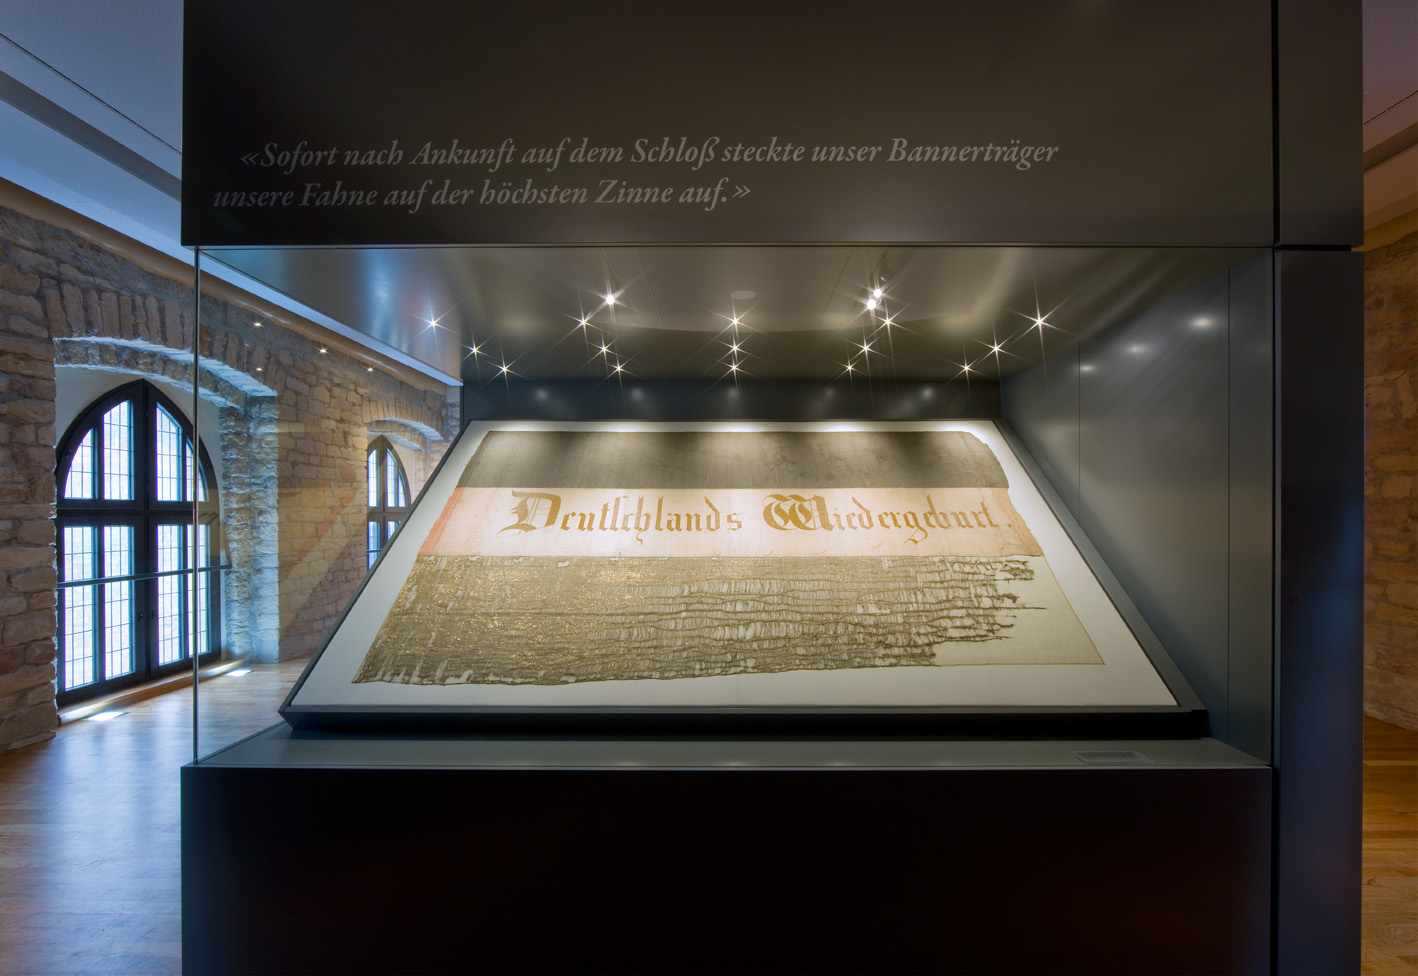 «Sofort nach Ankunft auf dem Schloß steckte unser Bannerträger
unsere Fahne auf der höchsten Zinne auf.»
Deutschlands Wiedergeburt.